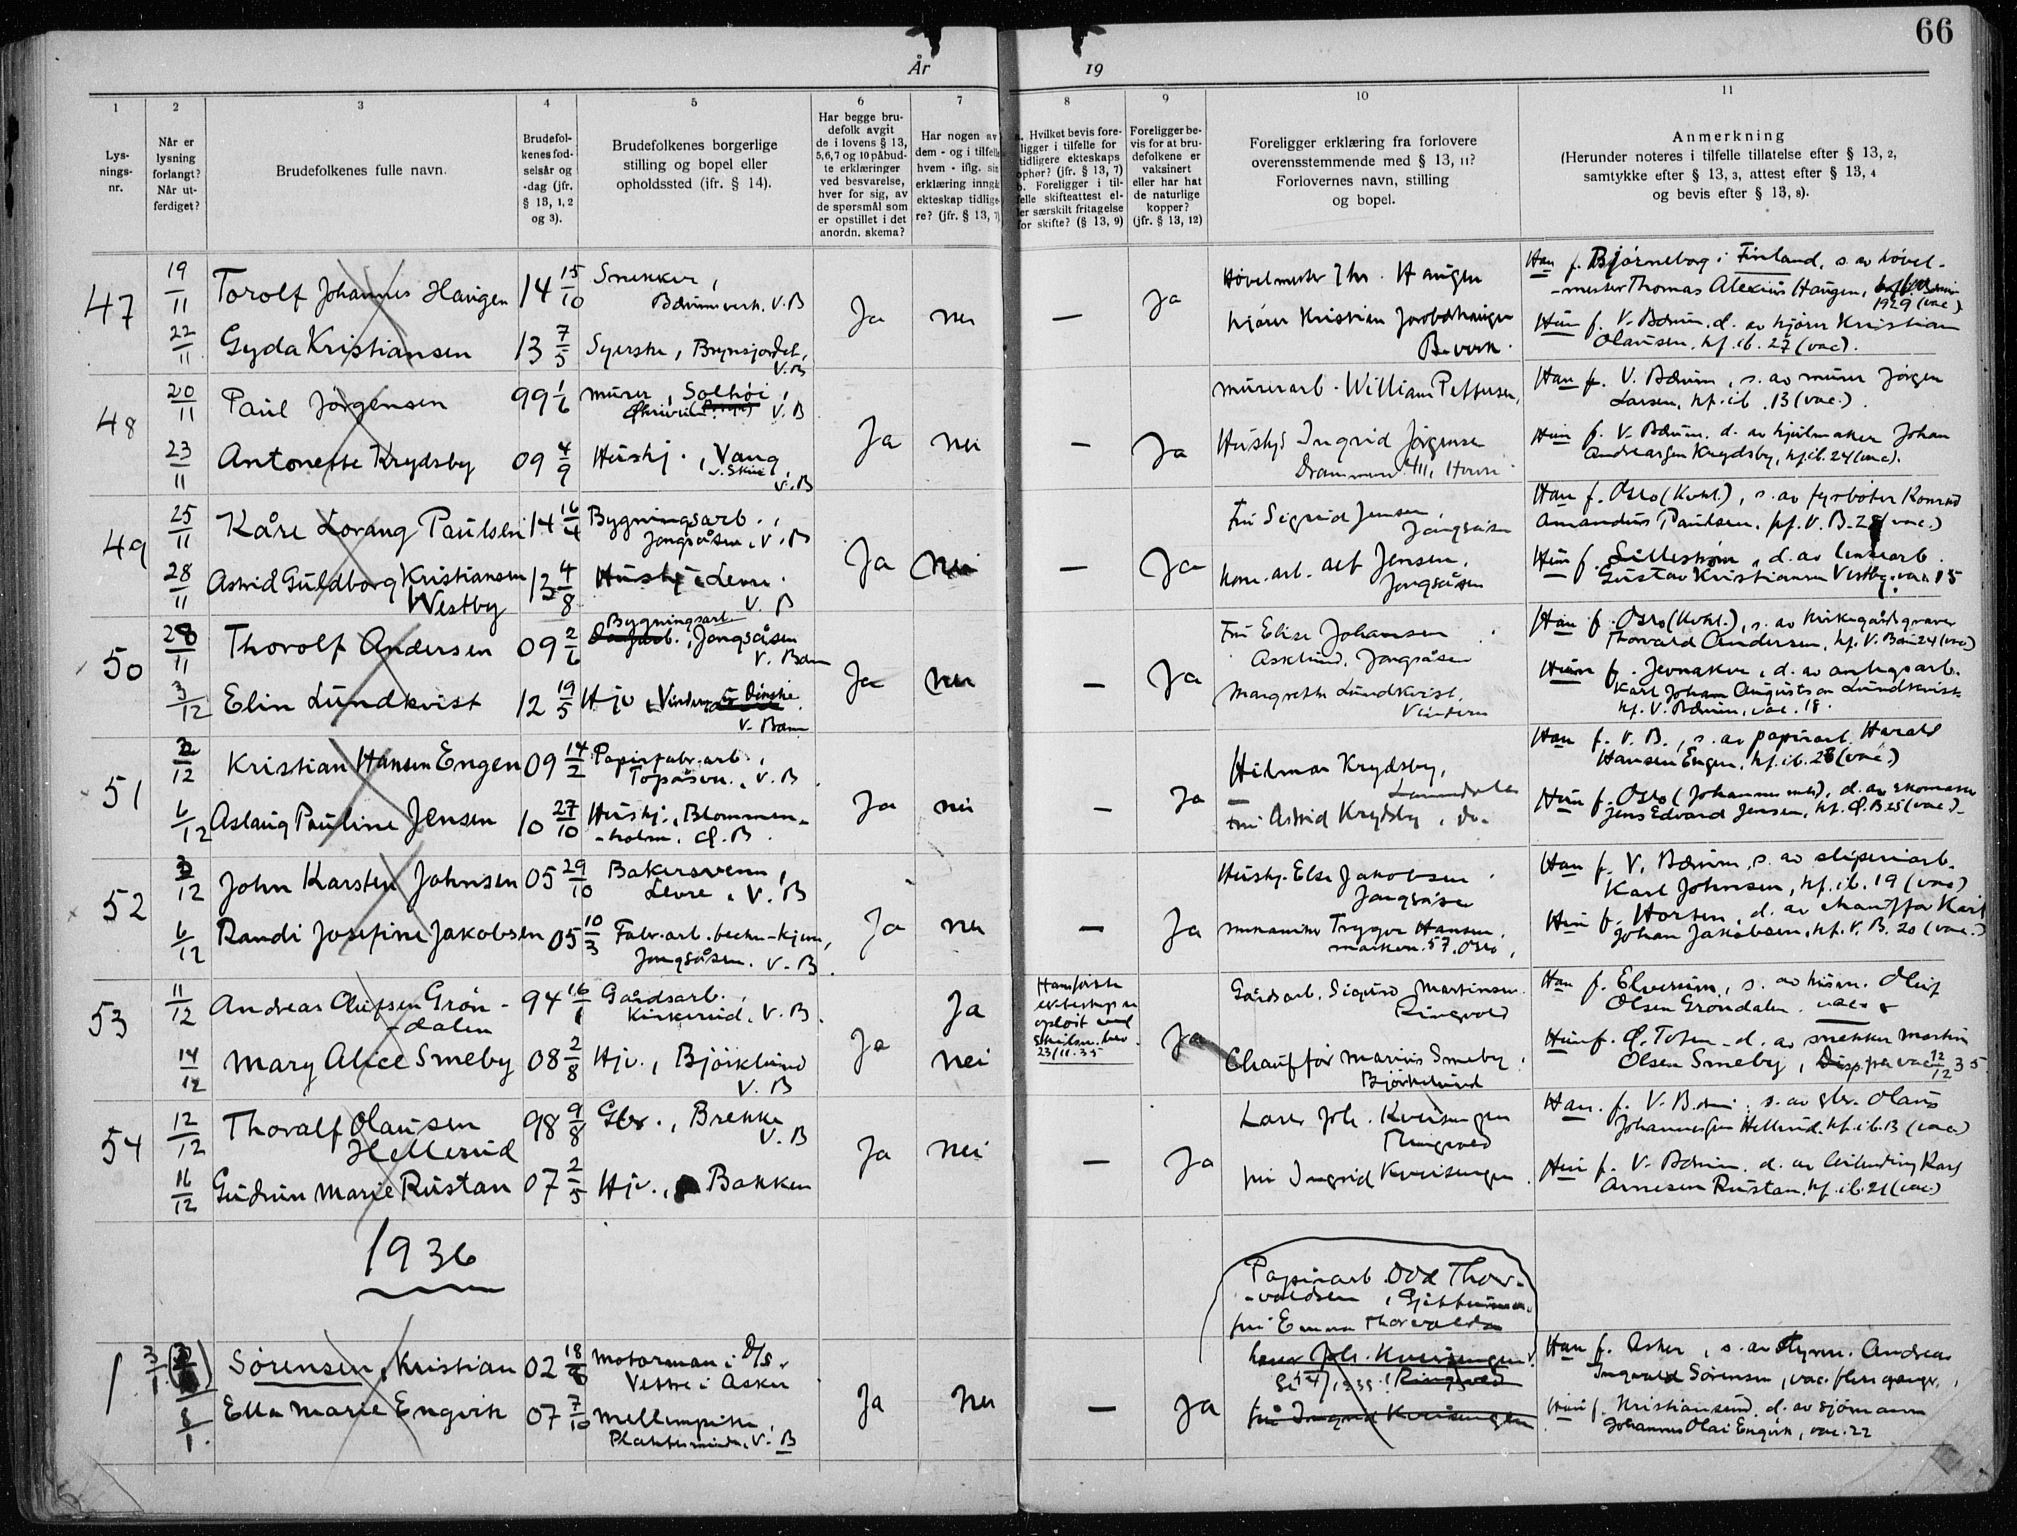 66
År
19
1
2
3
4
5
6
7
8
9
10
11
Lys-
nings-
nr.
Når er
lysning
forlangt?
Når ut-
ferdiget?
Brudefolkenes fulle navn.
Brudefol-
kenes fød-
selsår og
-dag (jfr.
§ 13, 1, 2
og 3).
Brudefolkenes borgerlige
stilling og bopel eller
opholdssted (ifr. § 14).
Har begge bru-
defolk avgit
de i lovens § 13,
5,6,7 og 10 påbud-
te erklæringer
ved besvarelse,
hver for sig, av
de spørsmål som
er opstillet i det
anordn. skema?
Har nogen av
dem - og i tilfelle
hvem - iflg. sin
erklæring inngå
ekteskap tidlige-
re? (jfr. § 13, 7)
a. Hvilket bevis fore-
ligger i tilfelle for
tidligere ekteskaps
ophør? (jfr. § 13, 7)
b. Foreligger i til-
felle skifteattest el-
ler særskilt fritagelse
for skifte? (§ 13, 9)
Foreligger be-
vis for at bru-
defolkene er
vaksinert
eller har hat
de naturlige
kopper?
(jfr. § 13, 12)
Foreligger erklæring fra forlovere
overensstemmende med § 13, 11?
Forlovernes navn, stilling
og bopel.
Anmerkning
(Herunder noteres i tilfelle tillatelse efter § 13, 2,
samtykke efter § 13, 3, attest efter § 13, 4
og bevis efter § 13, 8).
47
19/11
Torolf Johannes Haugen
14 15/10
Snekker,
Bærumsverk. V. B
Ja
nei
—
Ja
Høvelmester Thr. Haugen
kjører Kristian
B. verk.
Han f. Bjørneborg i Finland, s. av høvel-
-mester Thomas Alexius Haugen,
1929 (vac)
22/11
Gyda Kristiansen
13 7/5
Syerske, Brynsjordet,
V. B
Hun f. V. Bærum. d. av kjører Kristian
Olausen, kf. ib. 27 (vac).
48
20/11
Paul Jørgensen
99 1/6
murer, Solhøi,
V. B
Ja
nei
—
Ja
murerarb. William Pettersen,
Huskj Ingrid Jørgensen
Han f. V. Bærum, s. av murer Jørgen
Larsen, kf. ib. 13 (vac.).
23/11
Antonette Krydsby
09 4/9
Huskj., Vang
v. Skui,
V. B
Hun f. V. Bærum. d. av hjulmaker Johan
Andreassen Krydsby, kf. ib. 24 (vac).
49
25/11
Kåre Lorang Paulsen
14 16/4
Bygningsarb.,
Jongsåsen, V. B
Ja
nei
—
Ja
Fru Sigrid Jensen,
Jongsåsen
kom. arb. Alf Jensen,
Jongsåsen
Han f. Oslo (Kvhl.), s. av fyrbøter Konrad
Amandus Paulsen, kf. V. B. 28 (vac.)
28/11
Astrid Guldborg Kristiansen
Westby
12 4/8
Huskj. Levre.
V. B
Hun f. Lillestrøm, d. av linjearb.
Gustav Kristiansen Vestby. vac. 15
50
28/11
Thorolf Andersen
09 2/6
Bygningsarb
Jongsåsen
V. Bærum
Ja
nei
—
Ja
Fru Elise Johansen
Asklund, Jongsåsen
Margrethe Lundkvist,
Vindern
Han f. Oslo (Kvhl.), s. av kirkegårdsgraver
Thorvald Andersen, kf. V. Bærum 24 (vac)
3/12
Elin Lundkvist
12 19/5
Hjv., Vindern
V. Bærum
Hun f. Jevnaker, d. av anlegsarb.
Karl Johan Augustson Lundkvist
kf. V. Bærum, vac. 18.
51
2/12
Kristian Hansen Engen
09 14/2
Papirfabr.arb.,
Topåsen, V. B.
Ja
nei
—
Ja
Hilmar Krydsby,
Fru Astrid Krydsby, do.
Han f. V. B., s. av papirarb. Harald
Hansen Engen, kf. ib. 23 (vac.)
6/12
Aslaug Pauline Jensen
10 27/10
Huskj., Blommen-
-holm, Ø. B.
Hun f. Oslo (Johannes mgh.), d. av skomaker
Jens Edvard Jensen, kf. Ø. B 25 (vac.)
52
3/12
John Karsten Johnsen
05 29/10
Bakersvenn,
Levre, V. B
Ja
nei
—
Ja
Huskj. Else Jakobsen
Jongsåsen
mekaniker Trygve Hansen,
marken. 57. Oslo,
Han f. V. Bærum, s. av sliperiarb.
Karl Johnsen, kf. ib. 19 (vac)
6/12
Randi Josefine Jakobsen
05 10/3
Fabr.arb.
Jongsåsen. V. B.
Hun f. Horten, d. av chauffør Karl
Johan Jakobsen, kf. V. B. 20 (vac.)
53
11/12
Andreas Olufsen Grøn-
-dalen
94 16/1
Gårdsarb.,
Kirkerud, V. B.
Ja
Ja
Hans første
ekteskap er
opløst ved
skilsm. bev.
23/11.35
Ja
Gårdsarb. Sigurd Martinsen
Ringvold
Chauffør Marius Smeby,
Bjørkelund
Han f. Elverum, s. av husm. Oluf
Olsen Grøndalen.
14/12
Mary Alice Smeby
08 2/8
Hjv., Bjørklund
V. B
nei
Hun f. Ø. Toten. d. av snekker Martin
Olsen Smeby, Disp. for vac 12/12 35
54
12/12
Thoralf Olausen
Hellerud
98 9/8
Gbr., Brekke
V. B
Ja
nei
—
Ja
Lars Joh. Kveisengen
Ringvold
fru Ingrid Kveisengen.
Han. f. V. Bærum. s. av gbr. Olaus
Johannessen Hellerud, kf. ib. 13 (vac.)
16/12
Gudrun Marie Rustan
07 2/5
Hjv., Bakken
Hun f. V. Bærum. d. av Karl
Arnesen Rustan, kf. ib. 21 (vac.)
1936
Papirarb. Odd Thor-
-valdsen,
fru Emma Thorvaldsen
1
3/1
Sørensen, Kristian
02 18/8
Motorman i D/S.
Vettre i Asker
Ja
nei
—
Ja
Lars Joh. Kveisengen
Ringvold
fru Ingrid Kveisengen
Han f. Asker, s. av styrm. Andreas
Ingvald Sørensen, vac. flere ganger.
8/1.
Ella Marie Engvik
07 7/10
V. B
Hun f. Kristiansund. d. av sjømann
Johannes Olai Engvik, vac. 22